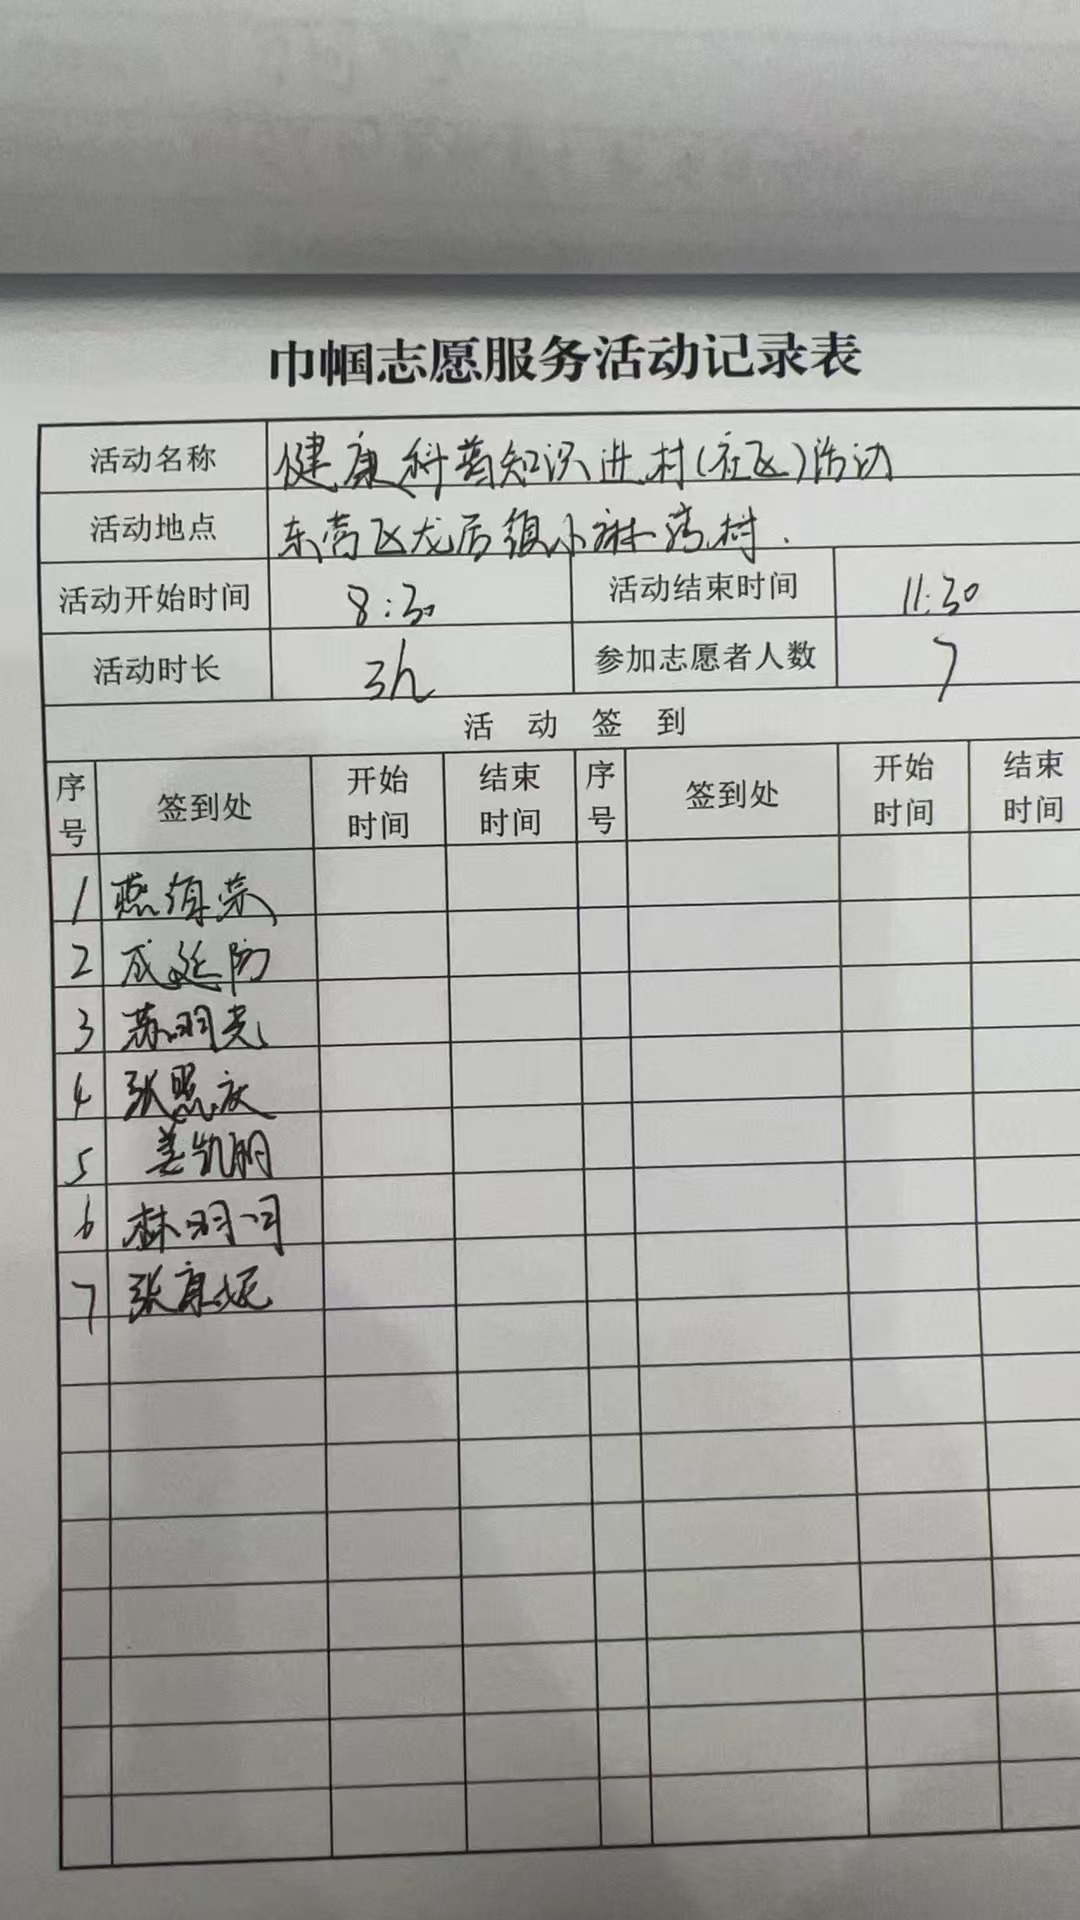 巾帼志愿服务活动记录表
活动名称 健康科普知识进村(社区)活动
活动地点 东营区龙居镇小麻湾村.
活动开始时间 8:30 活动结束时间 11:30
活动时长 3h 参加志愿者人数 7
活动签到
序号 签到处 开始时间 结束时间 序号 签到处 开始时间 结束时间
1 燕荣
2 成延防
3 苏明亮
4 张照庆
5 姜凯明
6 林明
7 张康妮